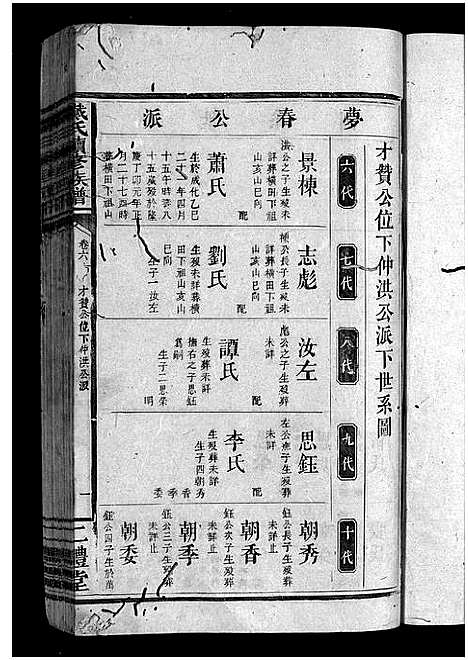 才贊公位下仲洪公派下世系圖
夢春公派
六代
七代
八代
九代
十代
景棟
洪公之子生歿未
詳葬橫田下祖
山亥山巳向
配
蕭氏
生於成化乙巳
二十一年四月
十五午時享八
十五歲歿於隆
慶丁卯元年正
月二十七酉時
葬橫田下祖山
志彪
棟公長子生歿未
詳葬橫田下祖
山亥山巳向
配
劉氏
生歿未詳葬橫
田下祖山亥山
巳向
生子一汝左
汝左
彪公之子生歿葬
未詳
配
譚氏
生歿葬未詳
撫右之子思鈺
為嗣
生子二思榮
明
思鈺
左公撫子生歿葬
未詳
配
李氏
生歿葬未詳
生子四朝秀
香季委
朝秀
鈺公長子生歿葬
未詳止
朝香
鈺公次子生歿葬
未詳止
朝季
鈺公三子生歿葬
未詳止
朝委
鈺公四子生於萬
戴氏續修族譜
卷六
才贊公位下仲洪公派
一
二禮堂